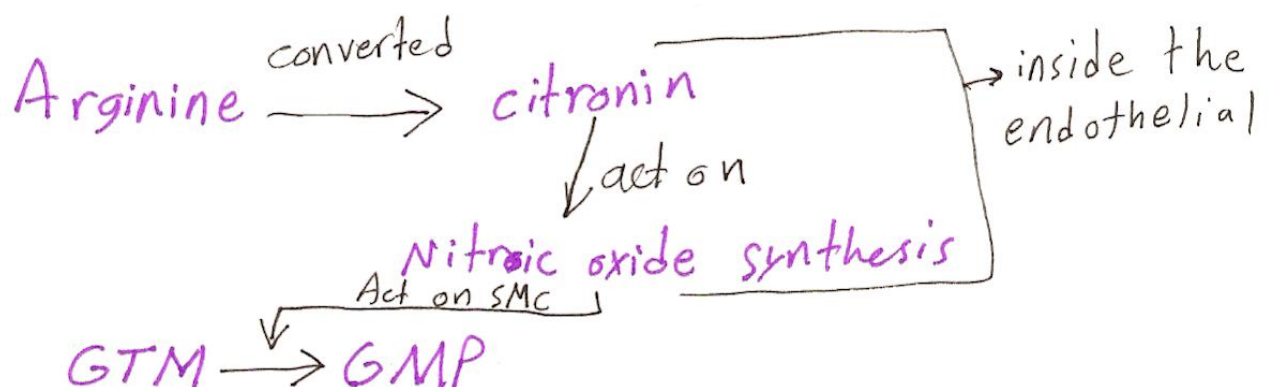 converted
Arginine → citronin
→ inside the
endothelial
act on
Nitroic oxide synthesis
Act on SMC
GTM → GMP